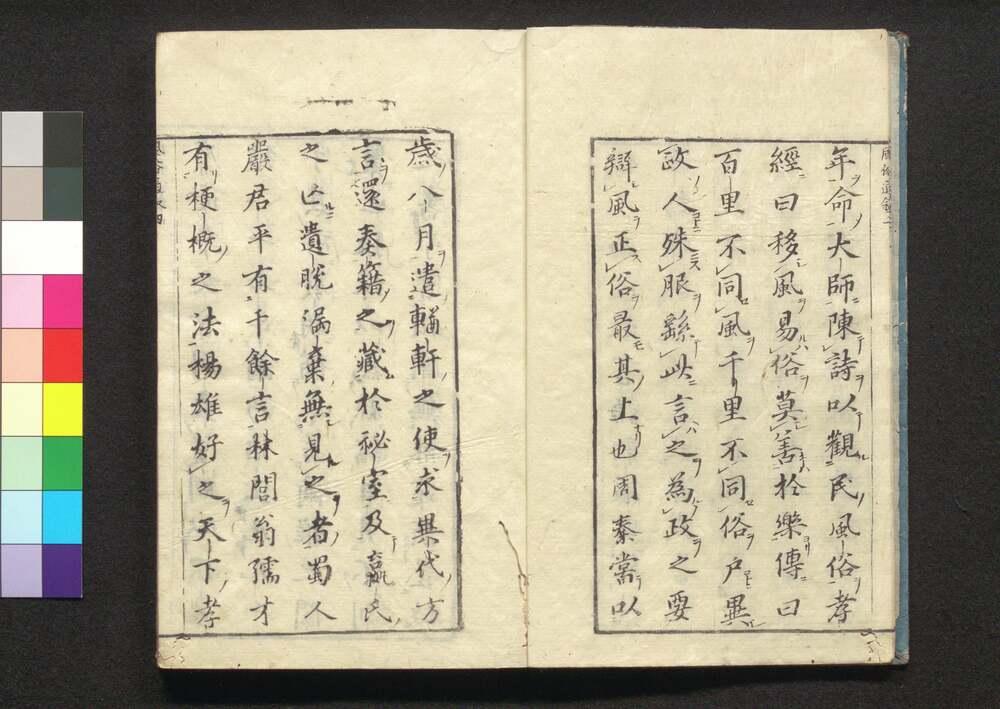 年命大師陳詩以觀民風俗孝
經曰移風易俗莫善於樂傳曰
百里不同風千里不同俗戶異
政人殊服繇此言之為政之要
辯風正俗最其上也周秦當以
歲八月遣輶軒之使求異代方
言還奏籍之藏於秘室及嬴氏
之亡遺脫漏棄無見之者蜀人
嚴君平有千餘言林閭翁孺才
有梗概之法楊雄好之天下孝